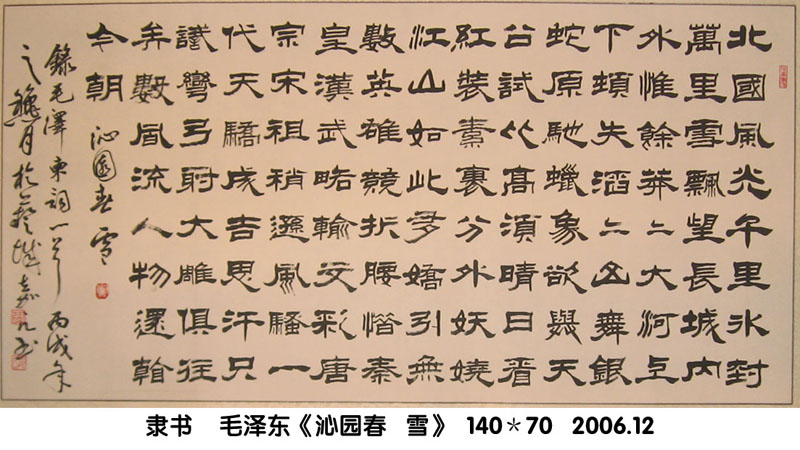 北國風光千里冰封
萬里雪飄望長城内
外惟餘莽二大河上
下頓失滔二山舞銀
蛇原馳蠟象欲與天
公試比高須晴日看
紅裝素裹分外妖嬈
江山如此多嬌引無
數英雄競折腰惜秦
皇漢武略輸文彩唐
宗宋祖稍遜風騷一
代天驕成吉思汗只
識彎弓射大雕俱往
矣數風流人物還看
今朝 沁園春雪
錄毛澤東詞一首 丙戌年
之月於城嘉书
隶书 毛泽东《沁园春 雪》 140*70 2006.12